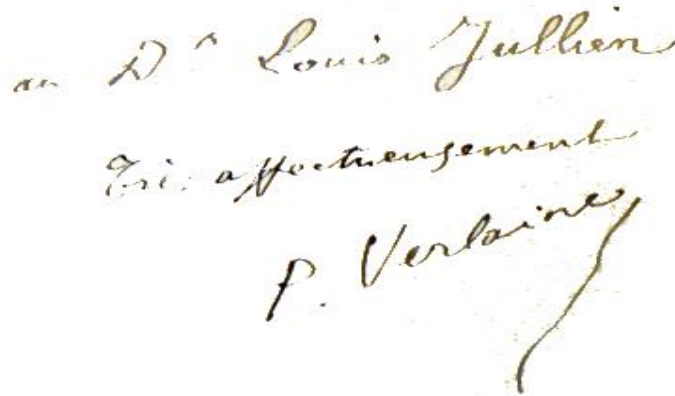 au Dr Louis Jullien
Très affectueusement
P. Verlaine